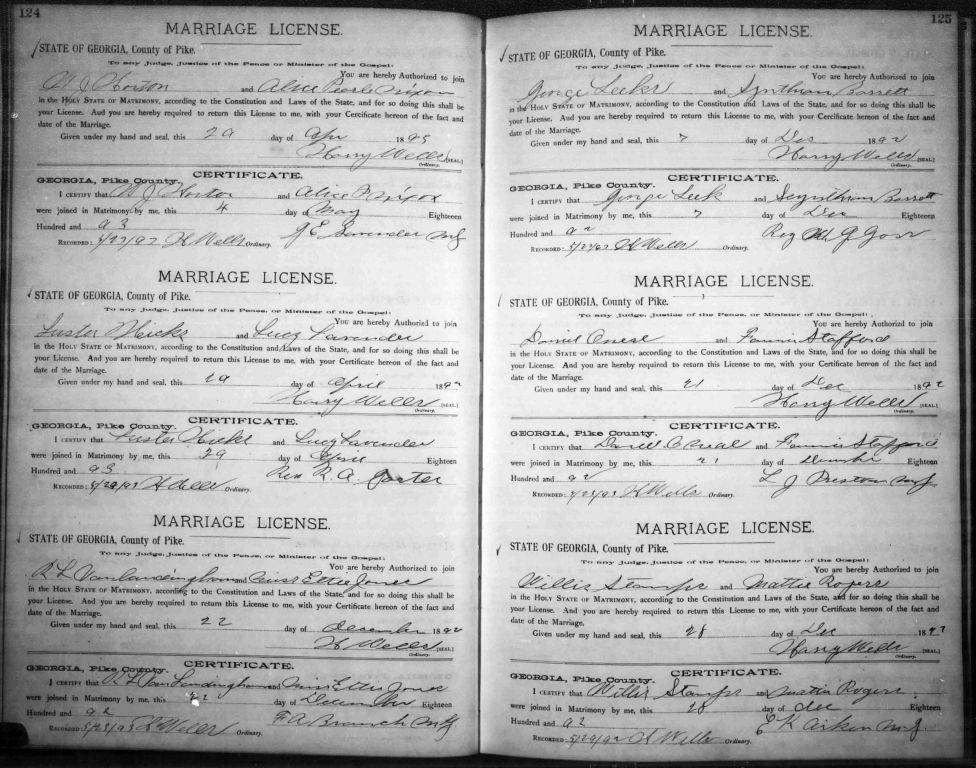 124
MARRIAGE LICENSE.
STATE OF GEORGIA, County of Pike.
To any Judge, Justice of the Peace or Minister of the Gospel:
You are hereby Authorized to join
W J Horton and Alice Pearle Nixon
in the HOLY STATE OF MATRIMONY, according to the Constitution and Laws of the State, and for so doing this shall be
your License. And you are hereby required to return this License to me, with your Certificate hereon of the fact and
date of the Marriage.
Given under my hand and seal, this 29 day of Apr 1893
Harry Wells [SEAL.]
Ordinary.
CERTIFICATE.
GEORGIA, Pike County.
I CERTIFY that W J Horton and Alice P
were joined in Matrimony by me, this 4 day of May Eighteen
Hundred and 93
RECORDED: H Wells Ordinary. G E Lavender
MARRIAGE LICENSE.
STATE OF GEORGIA, County of Pike.
To any Judge, Justice of the Peace, or Minister of the Gospel:
You are hereby Authorized to join
Luster Hicks and Lucy Lavender
in the HOLY STATE OF MATRIMONY, according to the Constitution and Laws of the State, and for so doing this shall be
your License. And you are hereby required to return this License to me, with your Certificate hereon of the fact and
date of the Marriage.
Given under my hand and seal, this 29 day of April 189
Harry Wells [SEAL.]
Ordinary.
CERTIFICATE.
GEORGIA, Pike County.
I CERTIFY that Luster Hicks and Lucy Lavender
were joined in Matrimony by me, this 29 day of April Eighteen
Hundred and 93 Rev R. A.
RECORDED: H Wells Ordinary.
MARRIAGE LICENSE.
STATE OF GEORGIA, County of Pike.
To any Judge, Justice of the Peace, or Minister of the Gospel:
You are hereby Authorized to join
R L Vanlandingham and Miss Ettie Jones
in the HOLY STATE OF MATRIMONY, according to the Constitution and Laws of the State, and for so doing this shall be
your License. And you are hereby required to return this License to me, with your Certificate hereon of the fact and
date of the Marriage.
Given under my hand and seal, this 22 day of December 1892
H Wells [SEAL.]
Ordinary.
CERTIFICATE.
GEORGIA, Pike County.
I CERTIFY that R L Vanlandingham and Miss Ettie Jones
were joined in Matrimony by me, this 22 day of December Eighteen
Hundred and 92 F A Branch
RECORDED: H Wells Ordinary.
125
MARRIAGE LICENSE.
STATE OF GEORGIA, County of Pike.
To any Judge, Justice of the Peace or Minister of the Gospel:
You are hereby Authorized to join
George Leeks and Synthian Barrett
in the HOLY STATE OF MATRIMONY, according to the Constitution and Laws of the State, and for so doing this shall be
your License. And you are hereby required to return this License to me, with your Certificate hereon of the fact and
date of the Marriage.
Given under my hand and seal, this 7 day of Dec 1892
Harry Wells [SEAL.]
Ordinary.
CERTIFICATE.
GEORGIA, Pike County.
I CERTIFY that George Leek and Barrett
were joined in Matrimony by me, this 7 day of Dec Eighteen
Hundred and 92
RECORDED: H Wells Ordinary.
MARRIAGE LICENSE.
STATE OF GEORGIA, County of Pike.
To any Judge, Justice of the Peace, or Minister of the Gospel:
You are hereby Authorized to join
and Fannie Stafford
in the HOLY STATE OF MATRIMONY, according to the Constitution and Laws of the State, and for so doing this shall be
your License. And you are hereby required to return this License to me, with your Certificate hereon of the fact and
date of the Marriage.
Given under my hand and seal, this 21 day of Dec 1892
Harry Wells [SEAL.]
Ordinary.
CERTIFICATE.
GEORGIA, Pike County.
I CERTIFY that and Fannie Stafford
were joined in Matrimony by me, this 21 day of Eighteen
Hundred and 92 L J Preston
RECORDED: H Wells Ordinary.
MARRIAGE LICENSE.
STATE OF GEORGIA, County of Pike.
To any Judge, Justice of the Peace, or Minister of the Gospel:
You are hereby Authorized to join
Willis Stamps and Mattie Rogers
in the HOLY STATE OF MATRIMONY, according to the Constitution and Laws of the State, and for so doing this shall be
your License. And you are hereby required to return this License to me, with your Certificate hereon of the fact and
date of the Marriage.
Given under my hand and seal, this 28 day of Dec 189
Harry Wells [SEAL.]
Ordinary.
CERTIFICATE.
GEORGIA, Pike County.
I CERTIFY that Willis Stamps and Mattie Rogers
were joined in Matrimony by me, this 28 day of Dec Eighteen
Hundred and 92 E K Aiken
RECORDED: H Wells Ordinary.